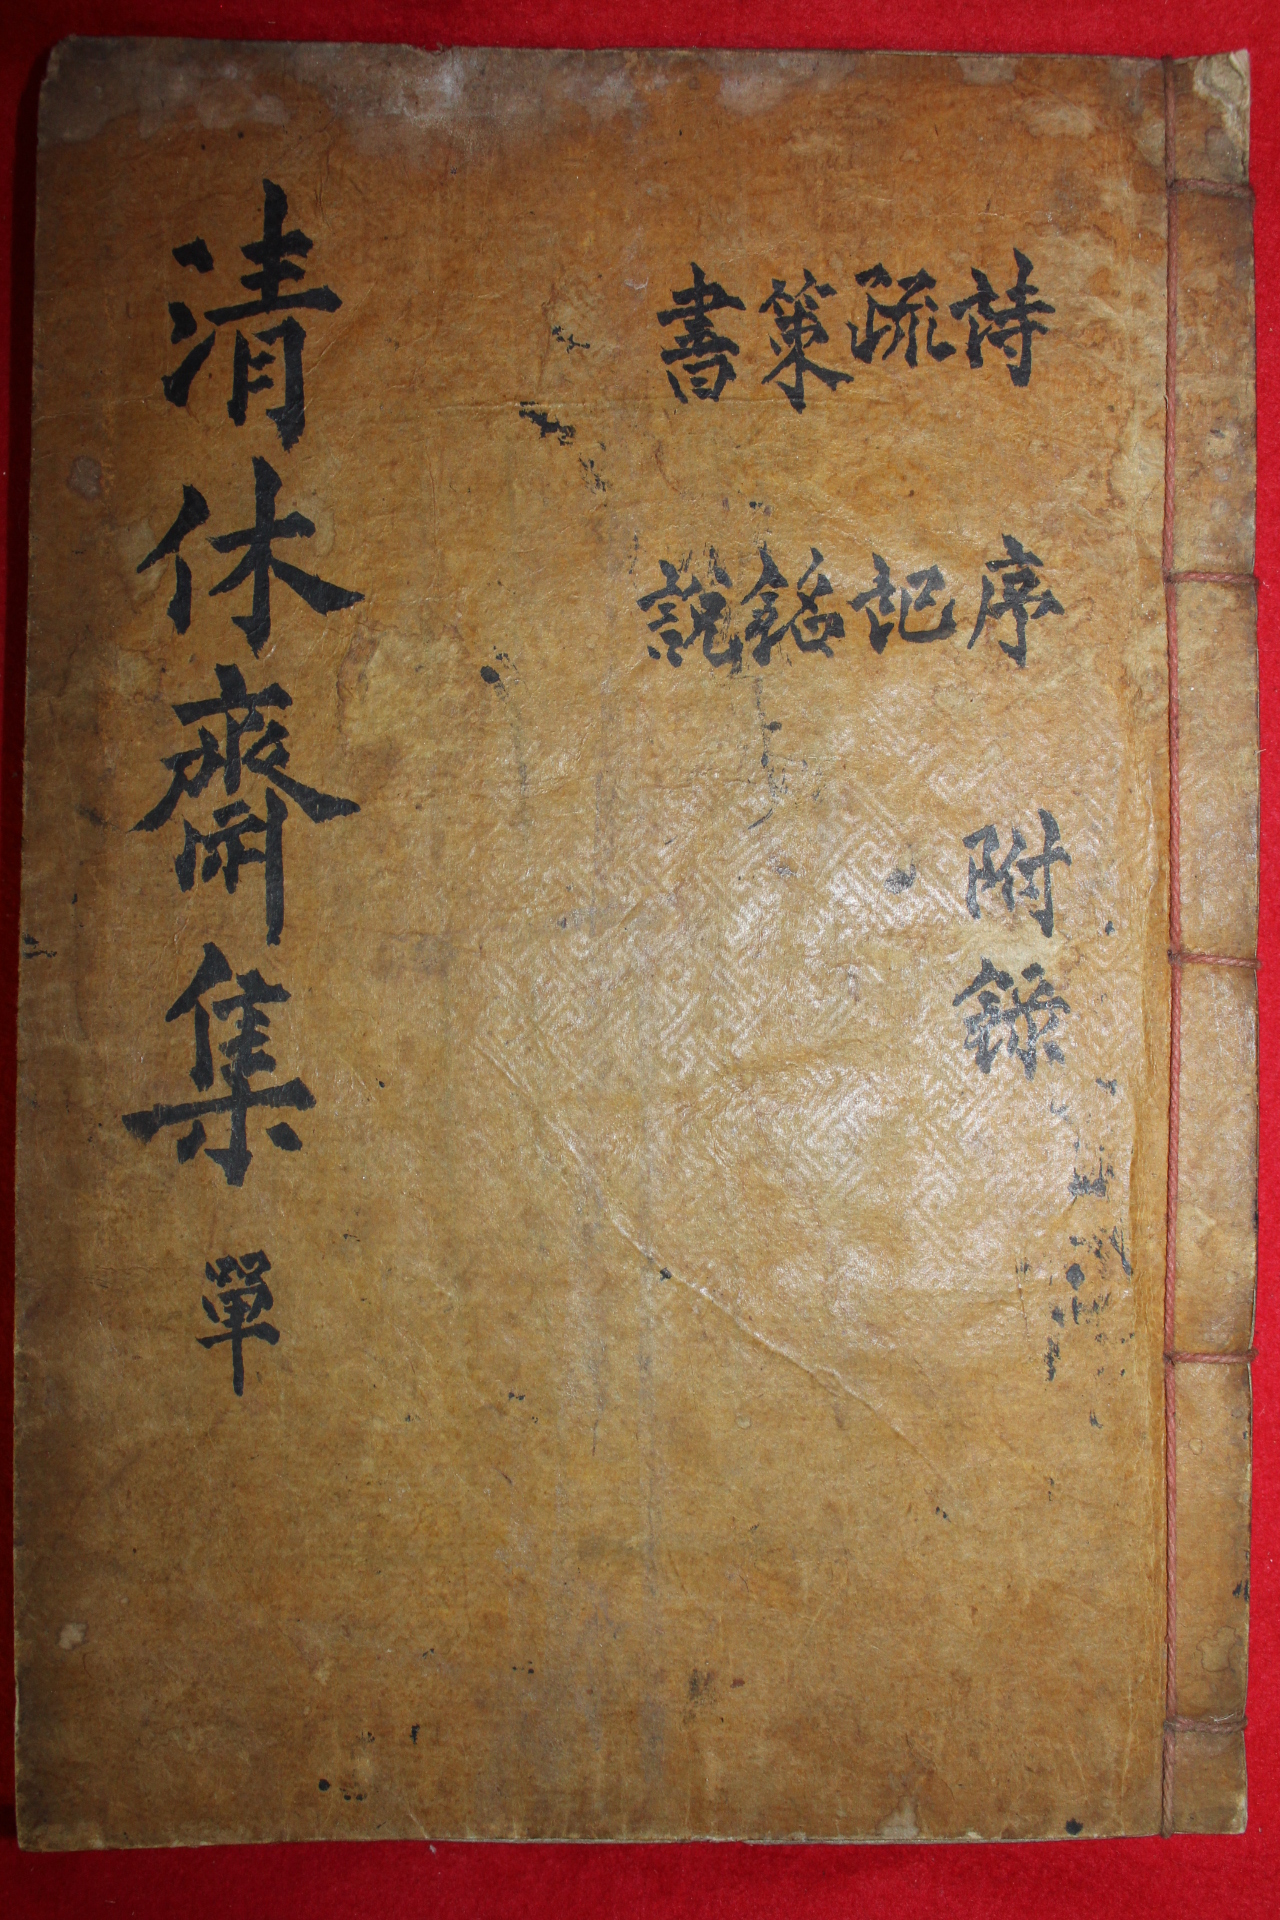 清休齋集 單
詩 疏 策 書
序 記 銘 說
附錄